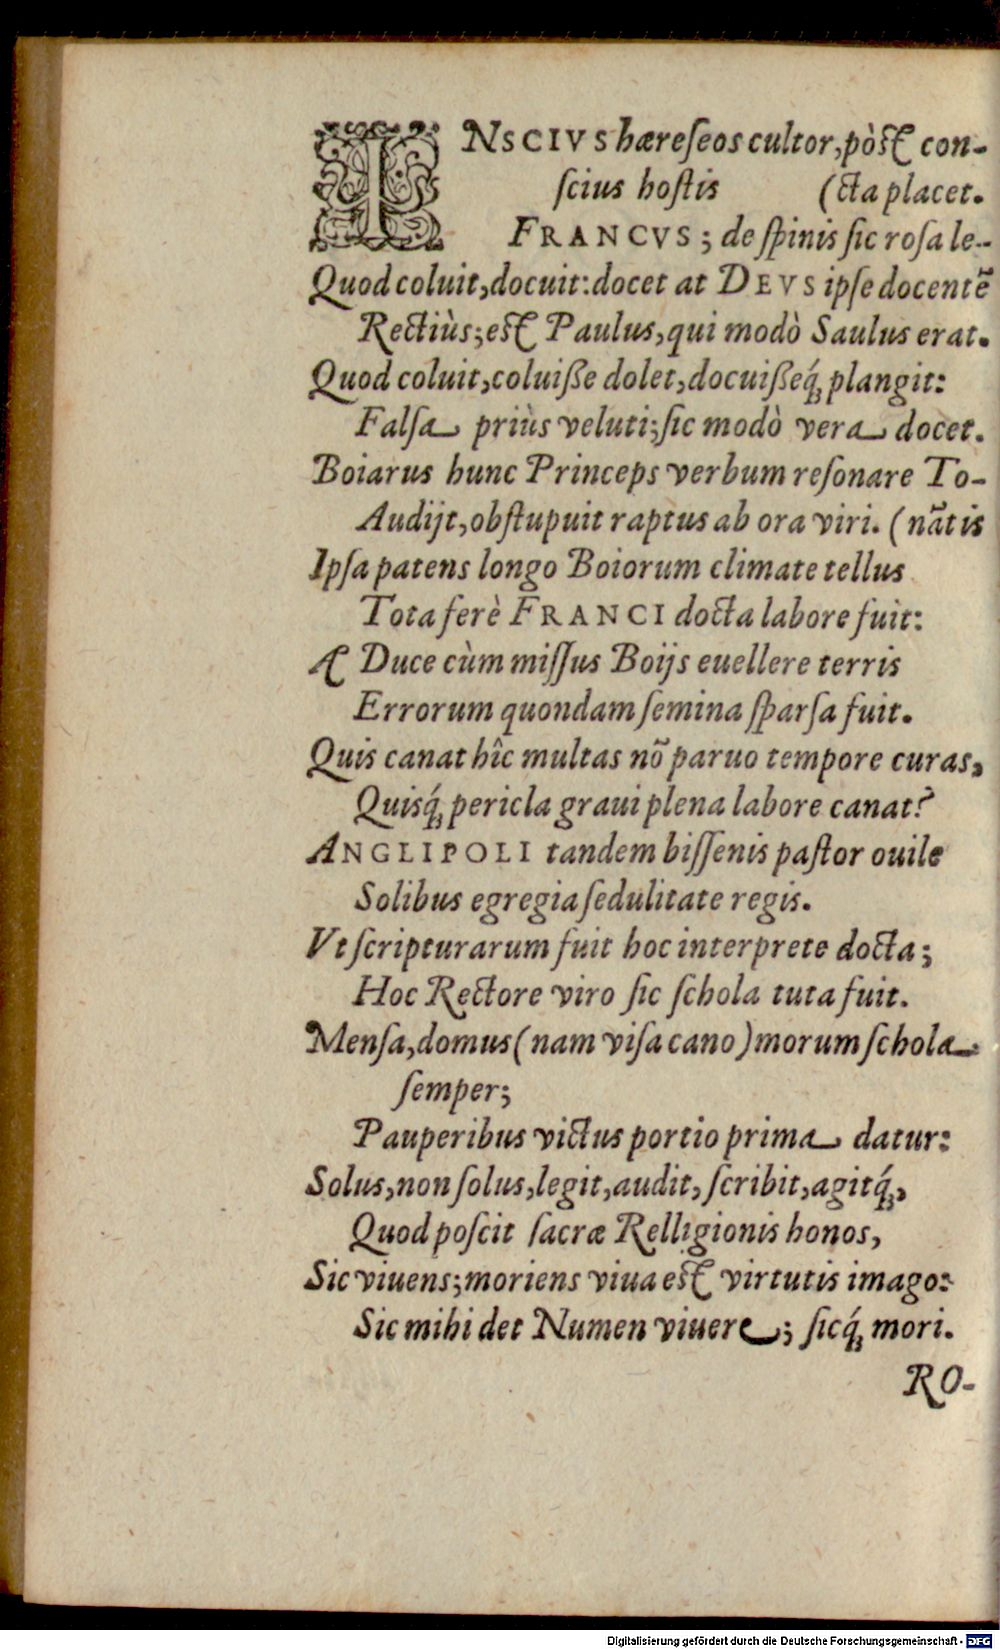 INSCIVS hæreſeos cultor, pòſt con-
ſcius hoſtis (cta placet.
FRANCVS; de ſpinis ſic roſa le-
Quod coluit, docuit: docet at DEVS ipſe docentẽ
Rectiùs; eſt Paulus, qui modò Saulus erat.
Quod coluit, coluiße dolet, docuißeq́; plangit:
Falſa priùs veluti; ſic modò vera docet.
Boiarus hunc Princeps verbum reſonare To-
Audijt, obſtupuit raptus ab ora viri. (nãtis
Ipſa patens longo Boiorum climate tellus
Tota ferè FRANCI docta labore fuit:
A Duce cùm miſſus Boijs euellere terris
Errorum quondam ſemina ſparſa fuit.
Quis canat hîc multas nõ paruo tempore curas,
Quisq́; pericla graui plena labore canat?
ANGLIPOLI tandem biſſenis paſtor ouile
Solibus egregia ſedulitate regis.
Vt ſcripturarum fuit hoc interprete docta;
Hoc Rectore viro ſic ſchola tuta fuit.
Menſa, domus (nam viſa cano) morum ſchola
ſemper;
Pauperibus victus portio prima datur:
Solus, non ſolus, legit, audit, ſcribit, agitq́;,
Quod poſcit ſacræ Relligionis honos,
Sic viuens; moriens viua eſt virtutis imago:
Sic mihi det Numen viuere; ſicq́; mori.
RO-
Digitalisierung gefördert durch die Deutsche Forschungsgemeinschaft - DFG